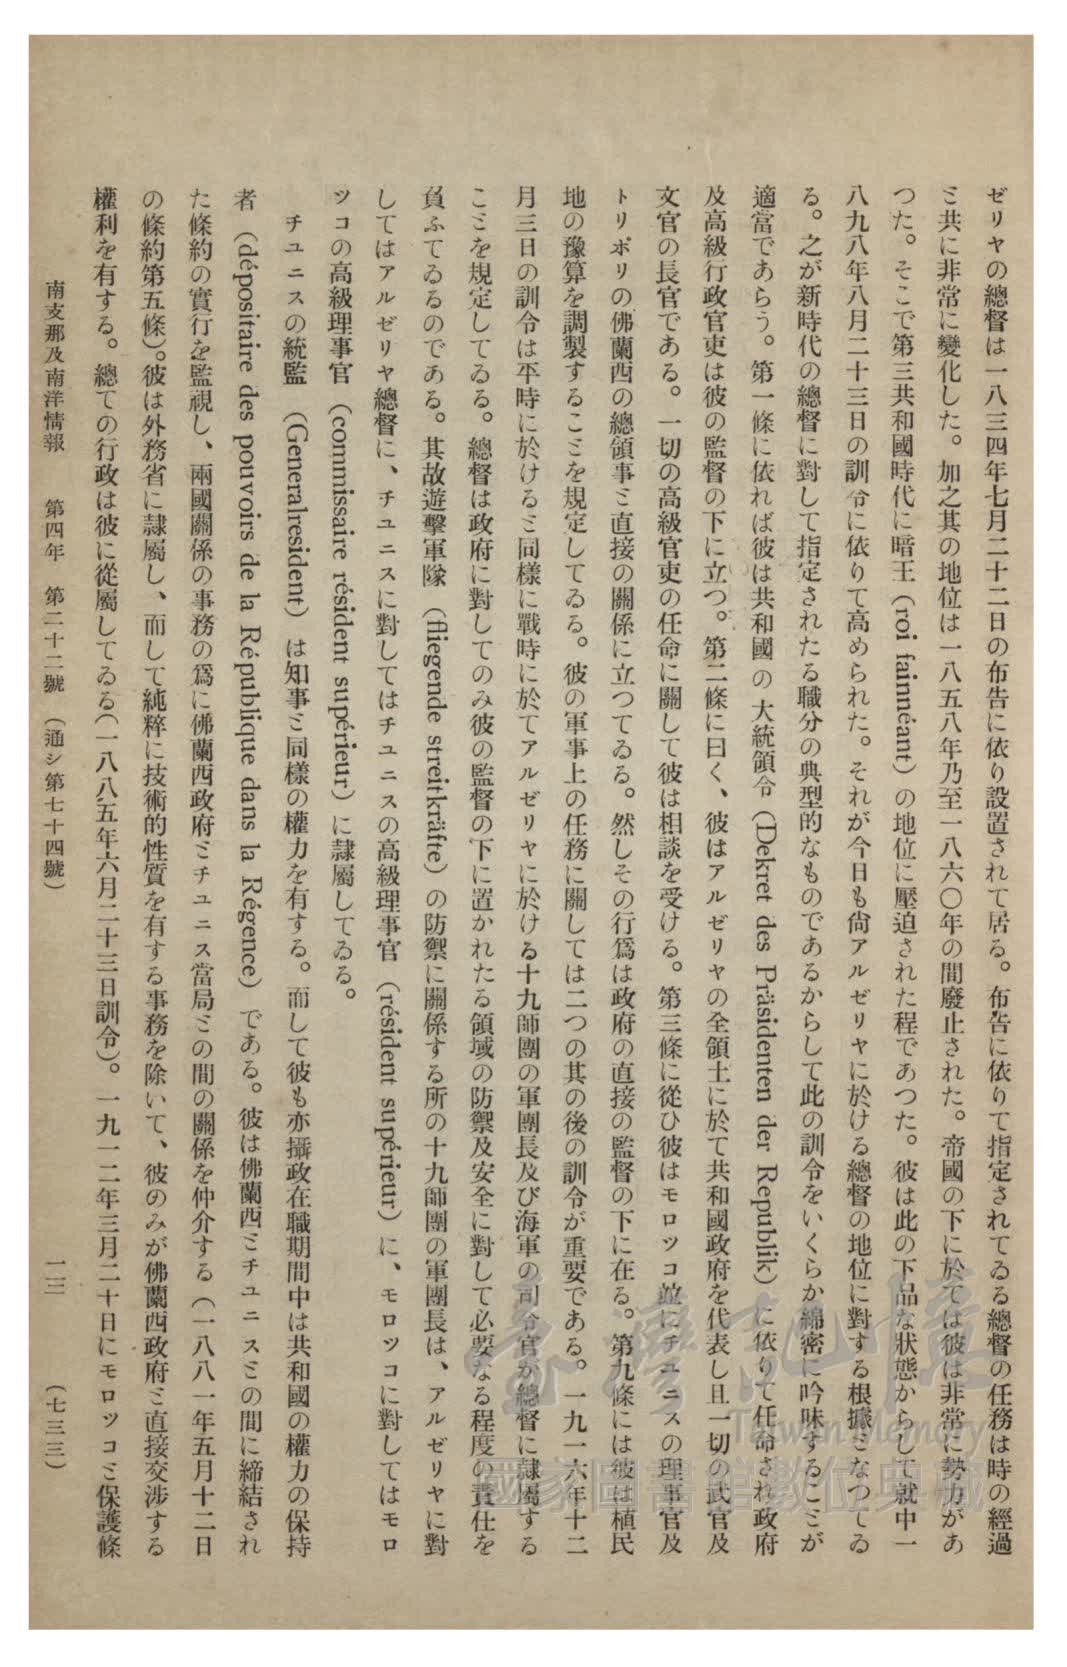 ゼリヤの總督は一八三四年七月二十二日の布告に依り設置されて居る。布告に依りて指定されてゐる總督の任務は時の經過
と共に非常に變化した。加之其の地位は一八五八年乃至一八六〇年の間廢止された。帝國の下に於ては彼は非常に勢力があ
つた。そこで第三共和國時代に暗王（roi fainnéant）の地位に壓迫された程であつた。彼は此の下品な狀態からして就中一
八九八年八月二十三日の訓令に依りて高められた。それが今日も尙アルゼリヤに於ける總督の地位に對する根據となつてゐ
る。之が新時代の總督に對して指定されたる職分の典型的なものであるからして此の訓令をいくらか綿密に吟味することが
適當であらう。第一條に依れば彼は共和國の大統領令（Dekret des Präsidenten der Republik）に依りて任命され政府
及高級行政官吏は彼の監督の下に立つ。第二條に曰く、彼はアルゼリヤの全領土に於て共和國政府を代表し且一切の武官及
文官の長官である。一切の高級官吏の任命に關して彼は相談を受ける。第三條に從ひ彼はモロツコ並にチユニスの理事官及
トリポリの佛蘭西の總領事と直接の關係に立つてゐる。然しその行爲は政府の直接の監督の下に在る。第九條には彼は植民
地の豫算を調製することを規定してゐる。彼の軍事上の任務に關しては二つの其の後の訓令が重要である。一九一六年十二
月三日の訓令は平時に於けると同樣に戰時に於てアルゼリヤに於ける十九師團の軍團長及び海軍の司令官が總督に隷屬する
ことを規定してゐる。總督は政府に對してのみ彼の監督の下に置かれたる領域の防禦及安全に對して必要なる程度の責任を
負ふてゐるのである。其故遊擊軍隊（fliegende streitkräfte）の防禦に關係する所の十九師團の軍團長は、アルゼリヤに對
してはアルゼリヤ總督に、チユニスに對してはチユニスの高級理事官（résident supérieur）に、モロツコに對してはモロ
ツコの高級理事官（commissaire résident supérieur）に隷屬してゐる。
チユニスの統監（Generalresident）は知事と同樣の權力を有する。而して彼も亦攝政在職期間中は共和國の權力の保持
者（dépositaire des pouvoirs de la République dans la Régence）である。彼は佛蘭西とチユニスとの間に締結され
た條約の實行を監視し、兩國關係の事務の爲に佛蘭西政府とチユニス當局との間の關係を仲介する（一八八一年五月十二日
の條約第五條）。彼は外務省に隷屬し、而して純粹に技術的性質を有する事務を除いて、彼のみが佛蘭西政府と直接交涉する
權利を有する。總ての行政は彼に從屬してゐる（一八八五年六月二十三日訓令）。一九一二年三月二十日にモロツコと保護條
南支那及南洋情報 第四年 第二十二號（通シ第七十四號） 一三 （七三三）
臺灣記憶
Taiwan Memory
國家圖書館數位典藏